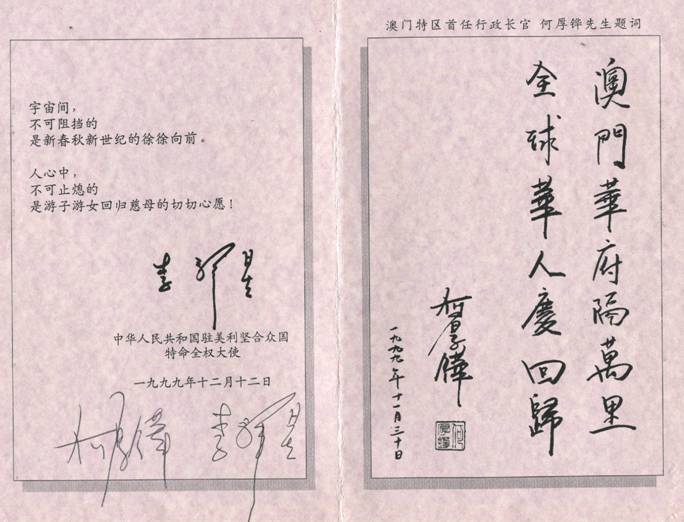 宇宙间，
不可阻挡的
是新春秋新世纪的徐徐向前。
人心中，
不可止熄的
是游子游女回归慈母的切切心愿！
李肇星
中华人民共和国驻美利坚合众国
特命全权大使
一九九九年十二月十二日
何厚铧 李肇星
澳门特区首任行政长官 何厚铧先生题词
澳門華府隔萬里
全球華人慶回歸
何厚鏵
一九九九年十一月三十日